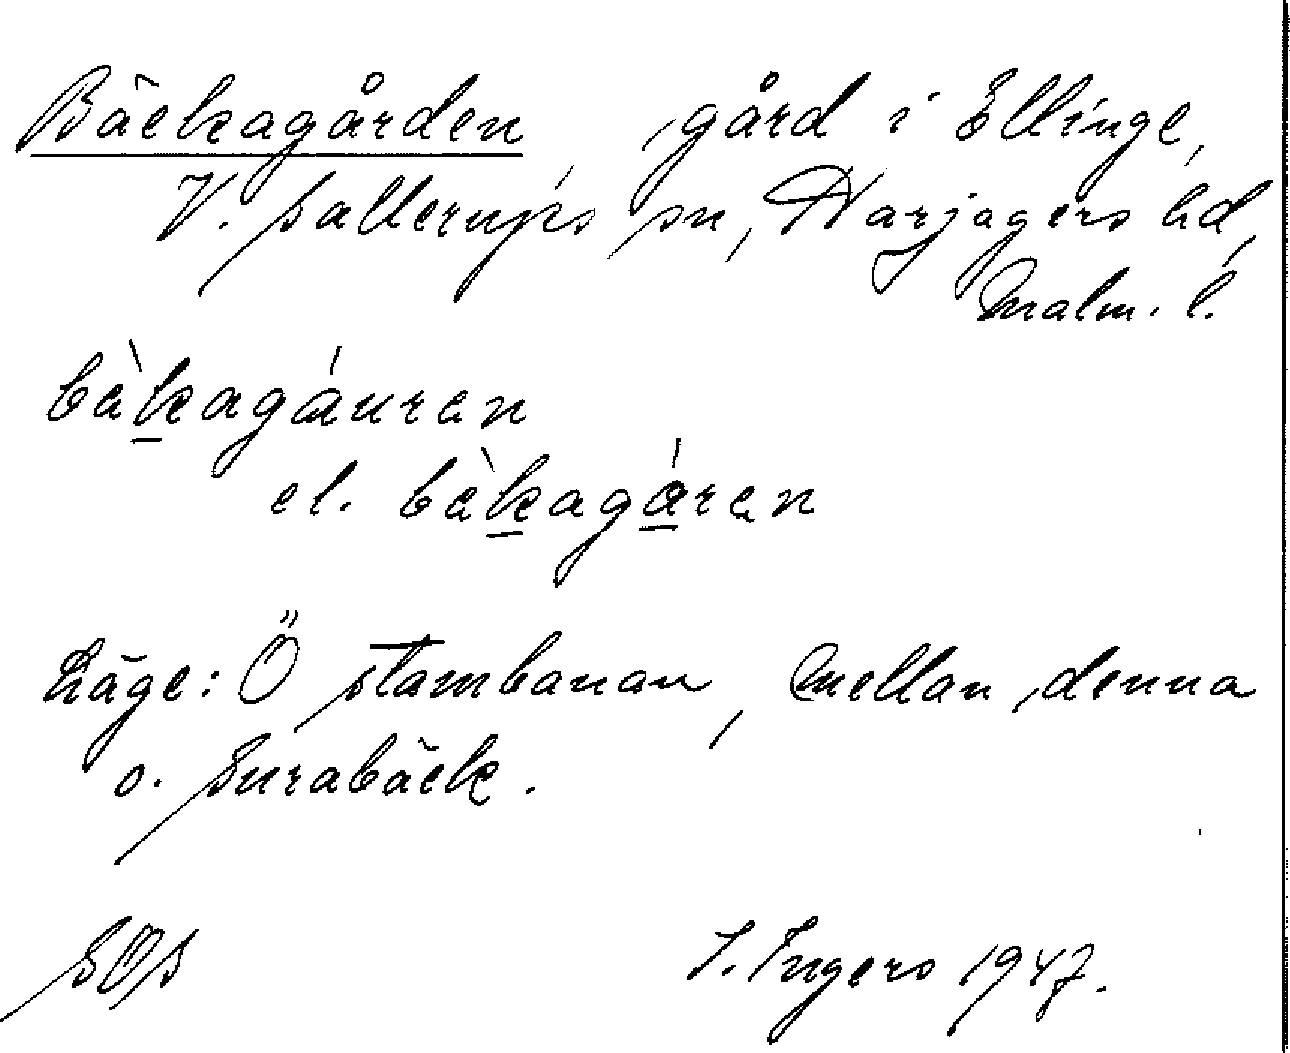 Bäckagården, gård i Ellinge,
V. Sallerups sn, Harjagers hd,
Malm. l.
bàkagáuran
el. bàkagáran
Läge: Ö stambanan, mellan denna
o. Surabäck.
SOS I. Ingers 1947.